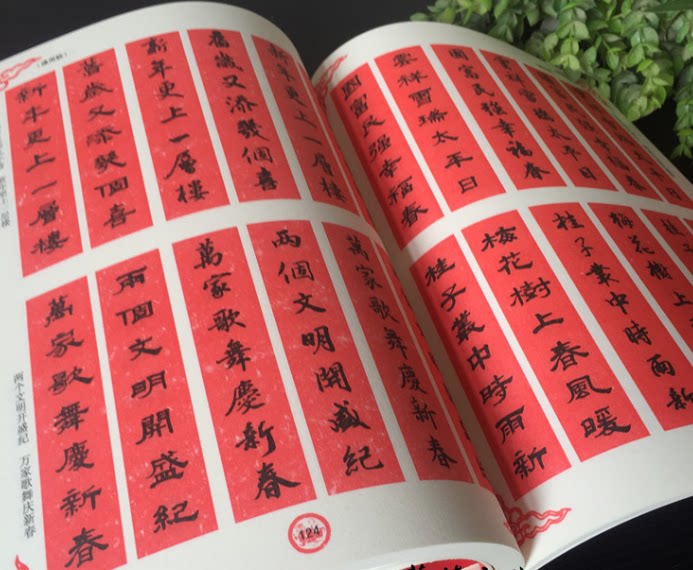 舊歲又添幾個喜
新年更上一層樓
舊歲又添幾個喜
新年更上一層樓
新年更上一層樓
萬家歌舞慶新春
兩個文明開盛紀
萬家歌舞慶新春
兩個文明開盛紀
萬家歌舞慶新春
两个文明开盛纪 万家歌舞庆新春
124
雲祥雪瑞太平日
國富民强幸福春
雲祥雪瑞太平日
國富民强幸福春
梅花樹上
桂子叢中時雨新
梅花樹上春風暖
桂子叢中時雨新